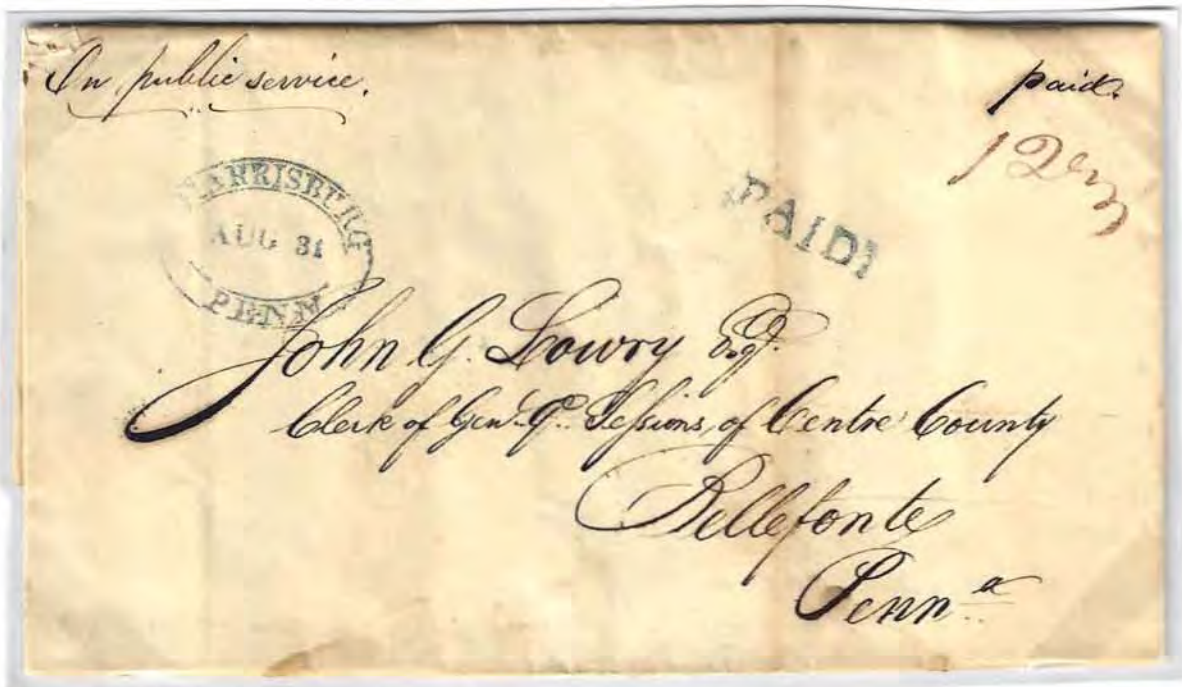 On public service.
paid.
12
HARRISBURG
AUG 31
PENN
PAID
John G. Lowry Esqr.
Clerk of Genl. Qr. Sessions, of Centre County
Bellefonte
Penna